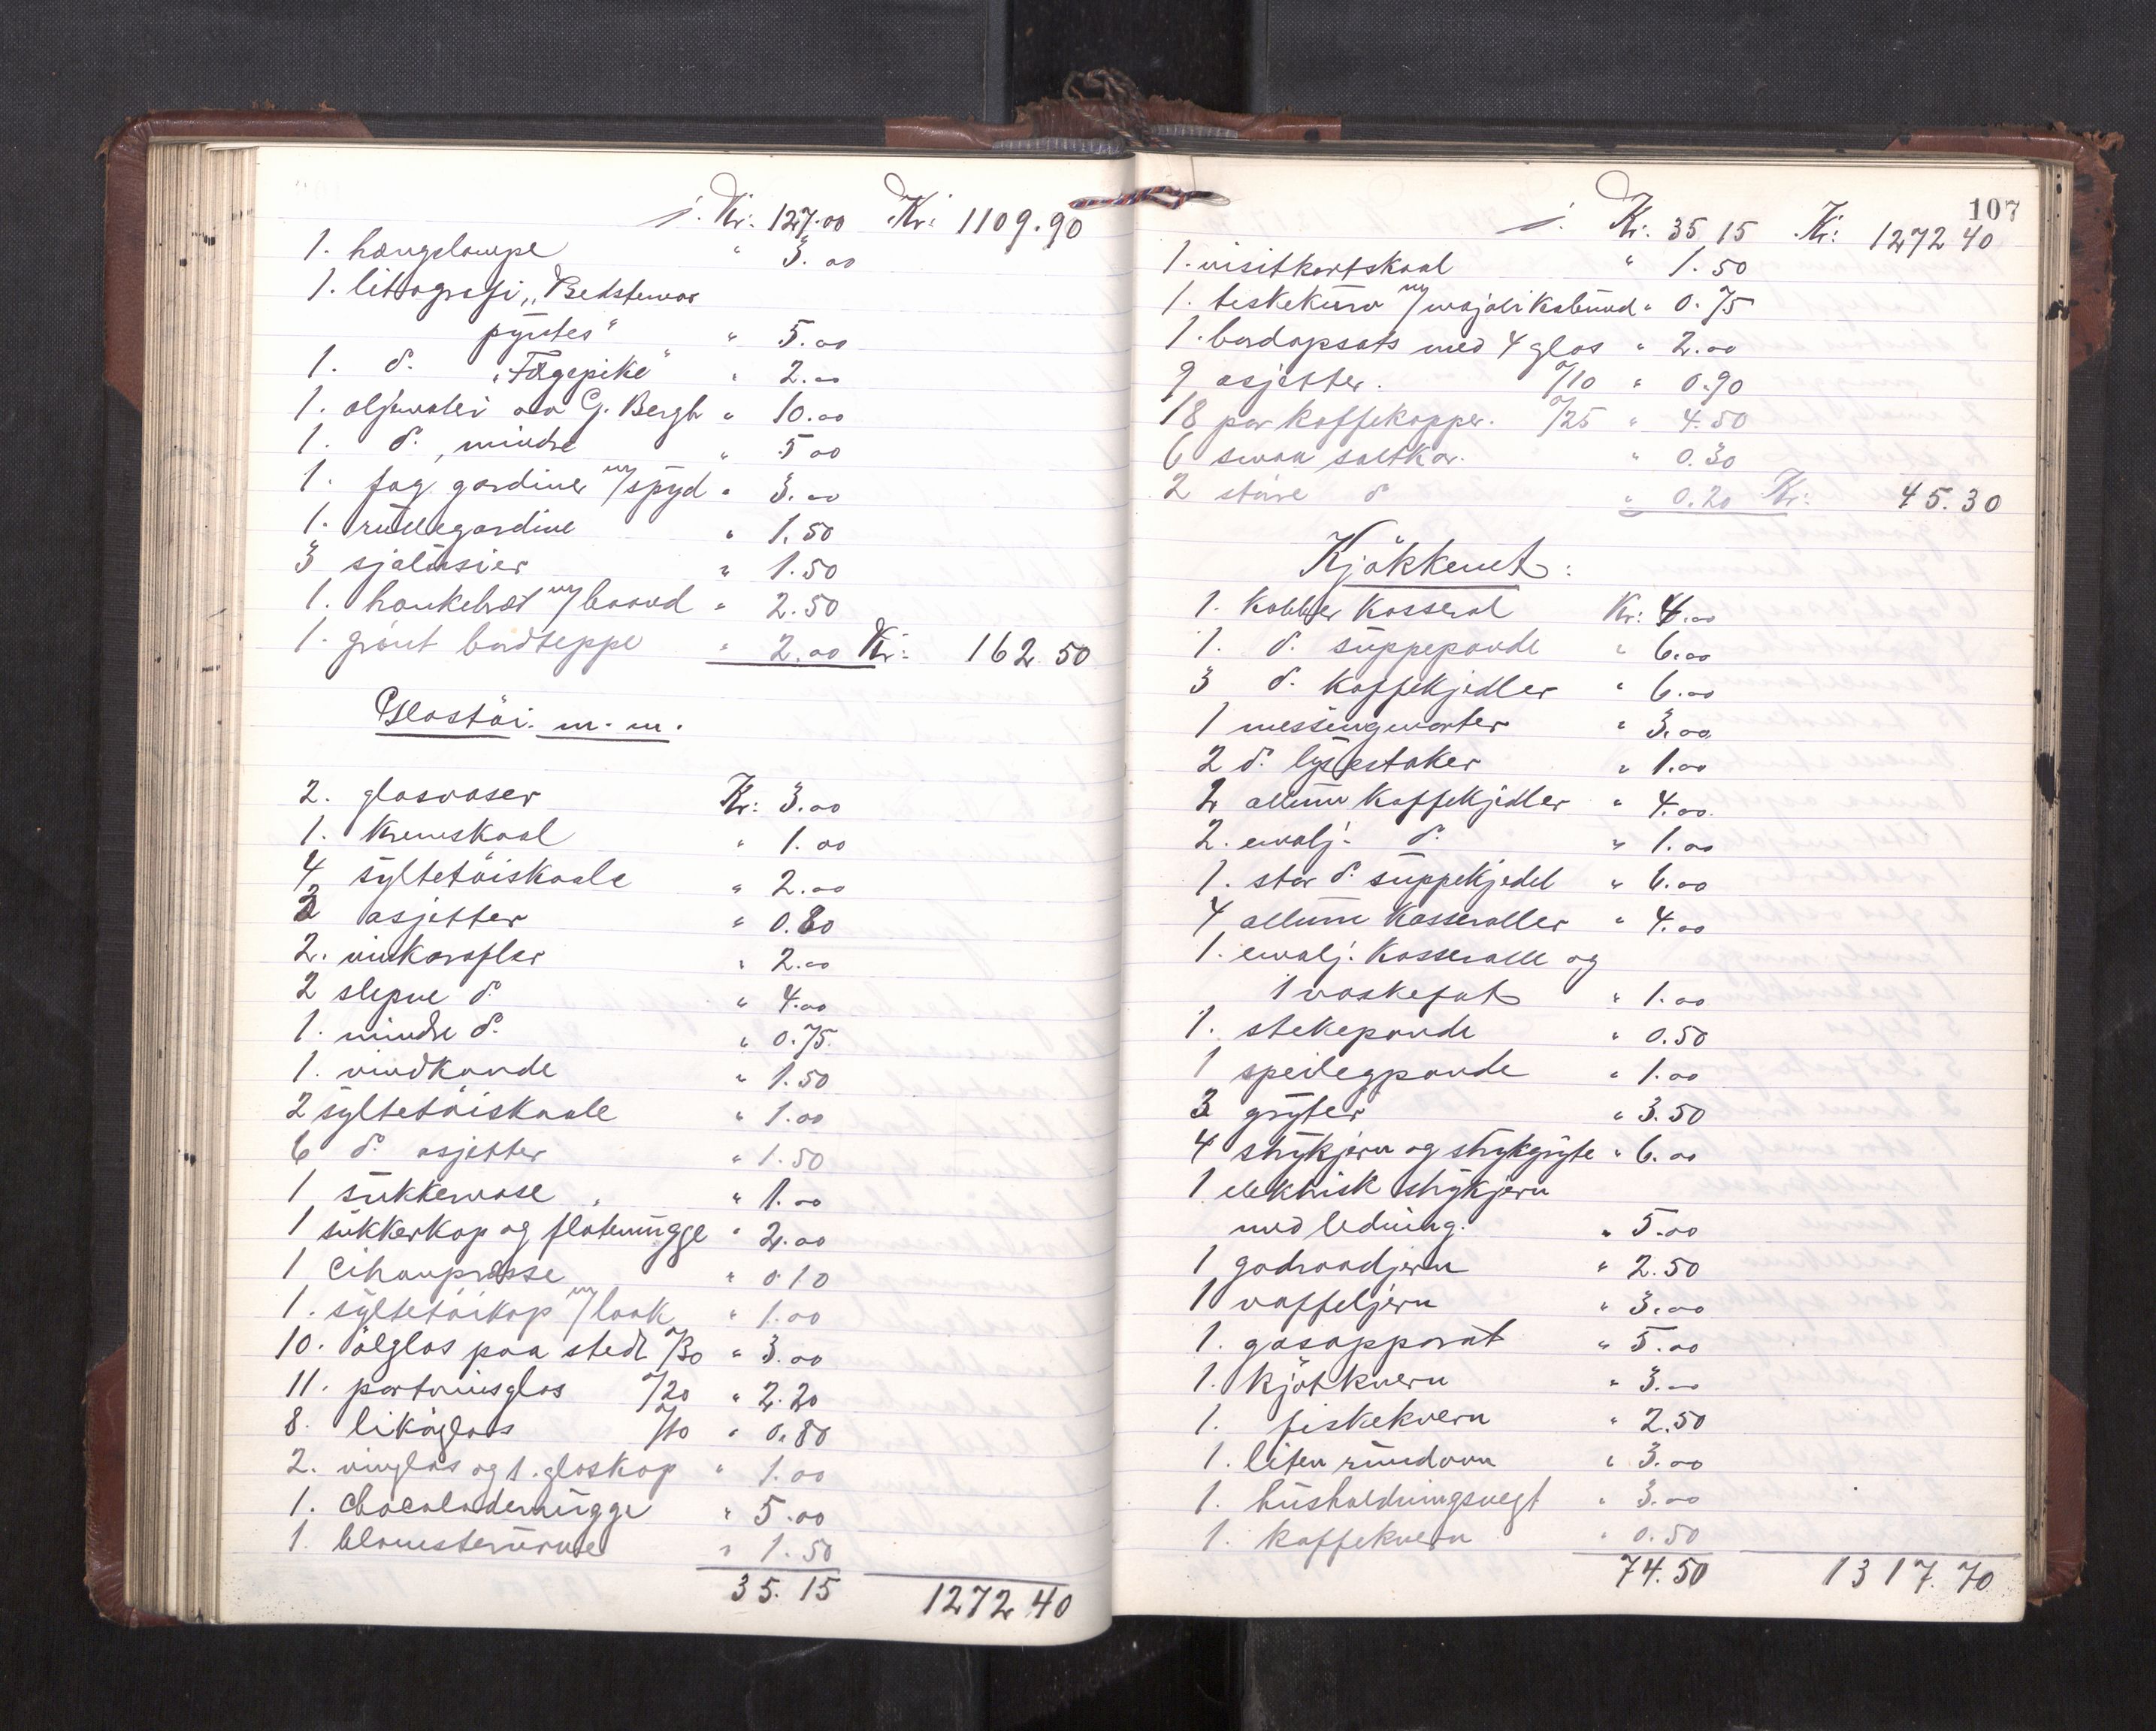 i. Kr: 127.00 Kr: 1109.90
1. hængelampe " 3.00
1. litografi „Bedstemor
pyntes" " 5.00
1. d. „Fægepike" " 2.00
1. oljemaleri av G. Bergh " 10.00
1. d. , mindre " 5 00
1. fag gardiner m/spyd " 3.00
1. rullegardine " 1.50
3 sjalusier " 1.50
1. hankebræt m/baand " 2.50
1. grönt bordteppe " 2.00 Kr: 162.50
Glastöi. m. m.
2. glasvaser Kr: 3.00
1. Kremskaal " 1.00
4 syltetöiskaale " 2.00
3 asjetter " 0.80
2. vinkarafler " 2.00
2 slepne d. " 4.00
1. mindre d. " 0.75
1. vindkande " 1.50
2 syltetöiskaale " 1.00
6 d. asjetter " 1.50
1 sukkervase " 1.00
1 sukkerkop og flötemugge " 2.00
1 Citronpresse " 0.10
1. syltetöikop m/laak " 1.00
10. ölglas paa stedt a/30 " 3.00
11. portvinsglas a/20 " 2.20
8. likörglas a/10 " 0.80
2. vinglas og 1. glaskop " 1.00
1. Chocolademugge " 5.00
1. blomsterurne " 1.50
35.15 1272 40
107
i. Kr. 35 15 Kr: 1272 40
1. visitkortskaal " 1.50
1. teskekurv m/majolikabund " 0.75
1. bordopsats med 4 glas " 2.00
9 asjetter. a/10 " 0.90
18 par kaffekopper. a/25 " 4.50
6 smaa saltkar. " 0.30
2 störe d " 0.20 Kr: 45.30
Kjökkenet:
1. Kobber Kasserol Kr: 4.00
1. d. suppepande " 6.00
3 d. Kaffekjedler " 6.00
1 messingmorter " 3.00
2 d. lysestaker " 1.00
2 allum Kaffekjedler " 4.00
2. emalj. d. " 1.00
1. stor d. suppekjedel " 6.00
4 allum Kasseroller " 4.00
1. emalj. Kasserolle og
1 vaskefat " 1.00
1. stekepande " 0.50
1 speilegpande " 1.00
3 gryter " 3.50
4 strykjern og strykgryte " 6.00
1 elektrisk strykjern
med ledning. " 5.00
1 godraadjern " 2.50
1 vaffeljern " 3.00
1. gasapparat " 5.00
1. Kjötkvern " 3.00
1. fiskekvern " 2.50
1. liten rundovn " 3.00
1. husholdningsvegt " 3.00
1. Kaffekvern " 0.50
74.50 1317.70